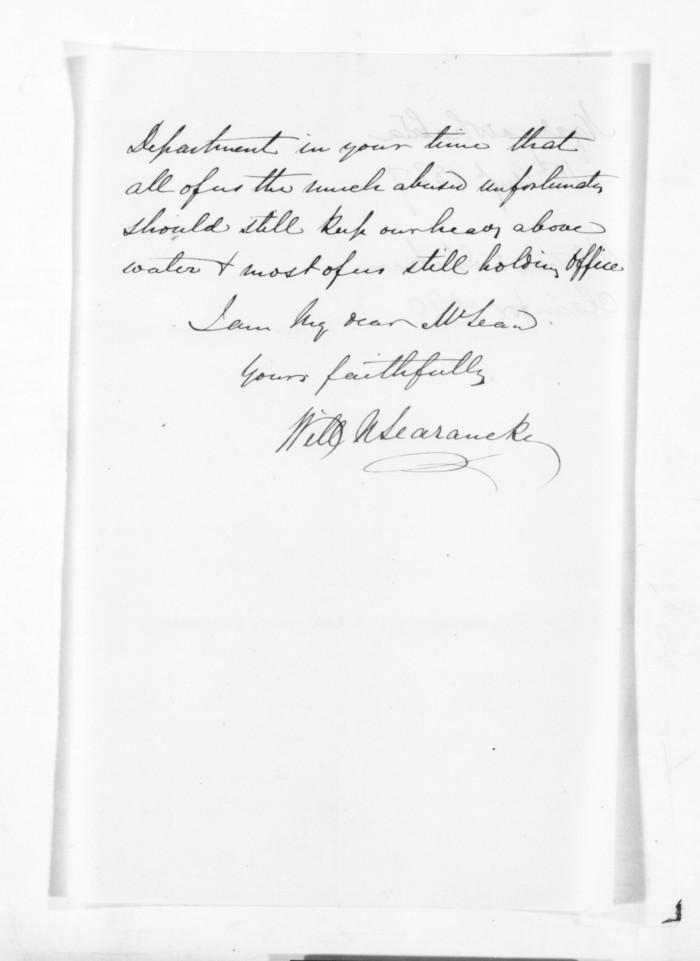 Department in your time that
all of us the much abused unfortunates
should still keep our heads above
water & most of us still holding office
I am My dear McLean.
Yours faithfully
Will N Searancke